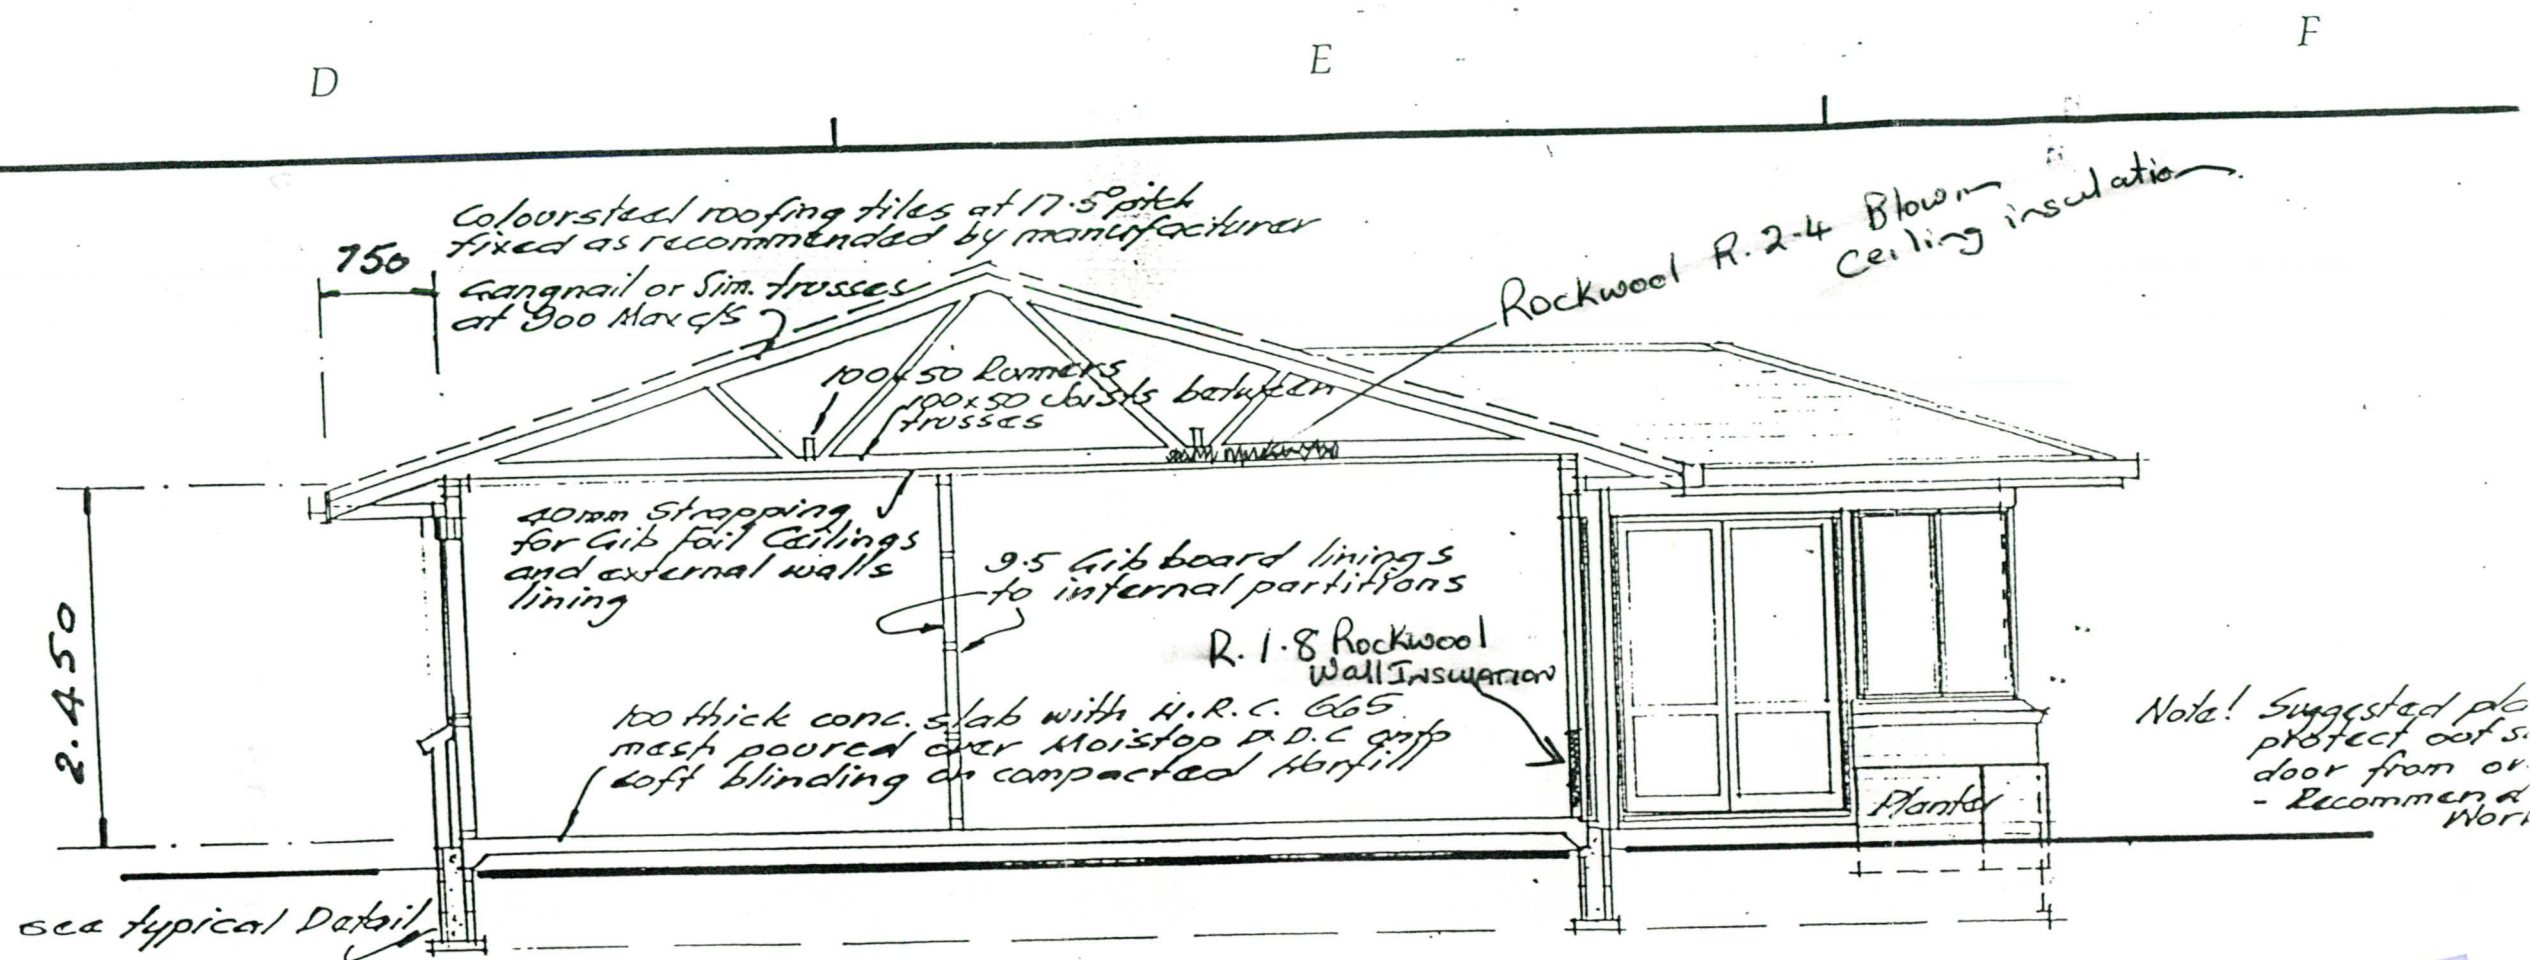 D
E
F
Coloursteel roofing tiles at 17.5° pitch
fixed as recommended by manufacturer
750
Gangnail or Sim. trusses
at 900 Max c/s
Rockwool R.2.4 Blown
Ceiling insulation
100x50 Runners
100x50 Joists between
trusses
40mm Strapping
for Gib Foil Ceilings
and external walls
lining
9.5 Gib board linings
to internal partitions
2.450
R.1.8 Rockwool
Wall Insulation
100 thick conc. slab with H.R.C. 665
mesh poured over Moistop D.P.C onto
soft blinding on compacted Harfill
Planter
Note! Suggested
protect
door from
- Recommend
see typical Detail